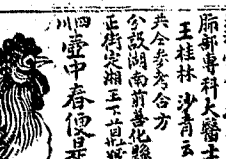 肺部專科大醫士
王桂林 沙青云
共仝參考合方
分設湖南前善化縣
正街定湘王
四川壺中春便是